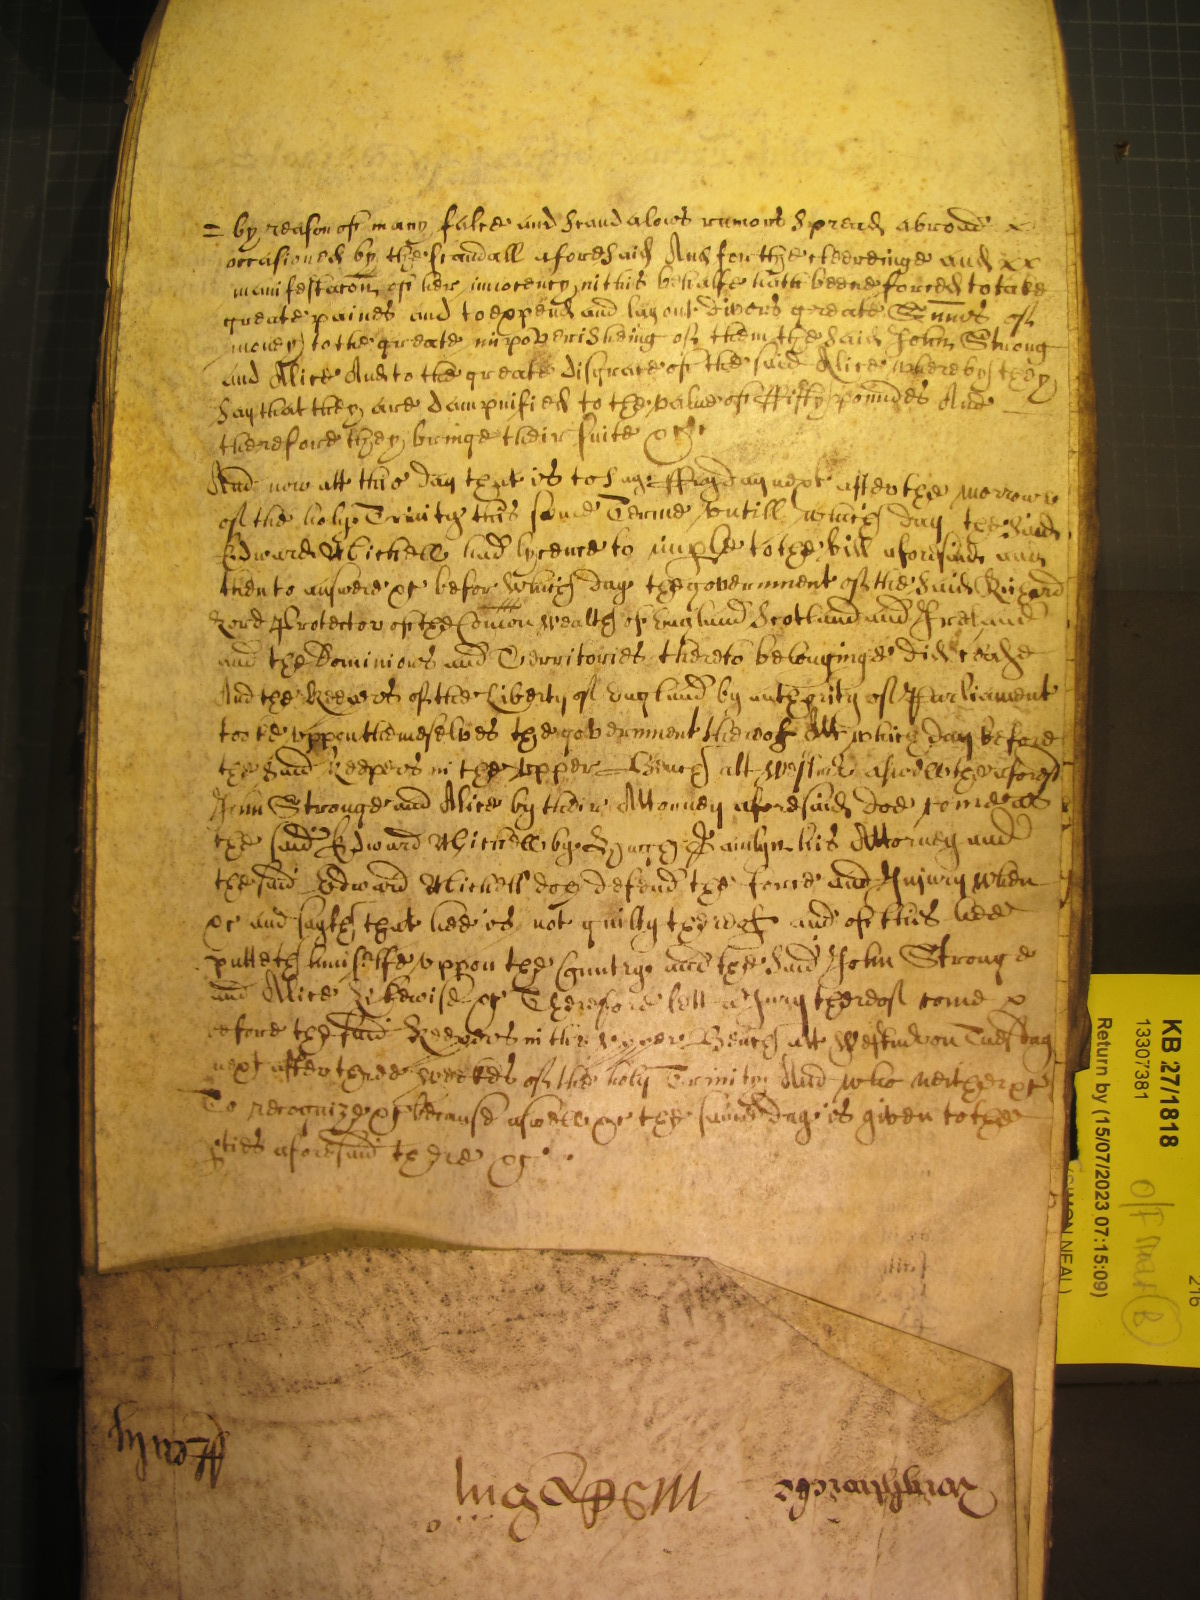 = by reason of many false and scandalous rumors spread abroad x
occasioned by the scandall aforesaid And for the cleeringe and xx
manifestacon of her innocency in this behalfe hath beene forced to take
greate paines and to expend and lay out divers greate Summs of
money to the greate impoverisheing of them the said John Strong
and Alice And to the greate disgrace of the said Alice whereby they
say that they are dampnified to the value of ffifty poundes And
therefore they bringe their suite &c
And now att this day that is to say ffryday next after the morrow
of the holy Trinity this same Terme untill which day the said
Edward Michell had lycence to imple to the bill aforesaid and
then to answere &c before which day the government of the said Richard
Lord Protector of the Comon wealth of England Scotland and Ireland
and the Dominions and Territories thereto belonginge did cease
And the Keepers of the Liberty of England by authority of Parliament
tooke uppon themeselves the government thereof Att which day before
the said Keepers in the Upper Bench att Westmr aswell the aforesd
John Stronge and Alice by their Attorney aforesaid doe come as
the said Edward Michell by his Attorney and
the said Edward Michell doth defend the force and Injury when
&c and sayth that hee is not guilty thereof and of this hee
putteth himselfe uppon the Countrye and the said John Stronge
and Alice likewise &c Therefore lett a Jury thereof come x
before the said Keepers in the Upper Bench att Westmr on Tuesday
next after three weekes of the holy Trinity And who neither &c
To recognize &c because aswell &c the same day is given to the
pties aforesaid there &c
KB 27/1818
13307381
Return by (15/07/2023 07:15:09)
(SIMON NEAL)
216